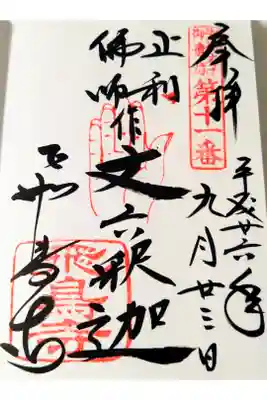 奉拝
第十一番
平成廿六年
九月廿三日
止利
佛師作
丈六釈迦
飛鳥寺